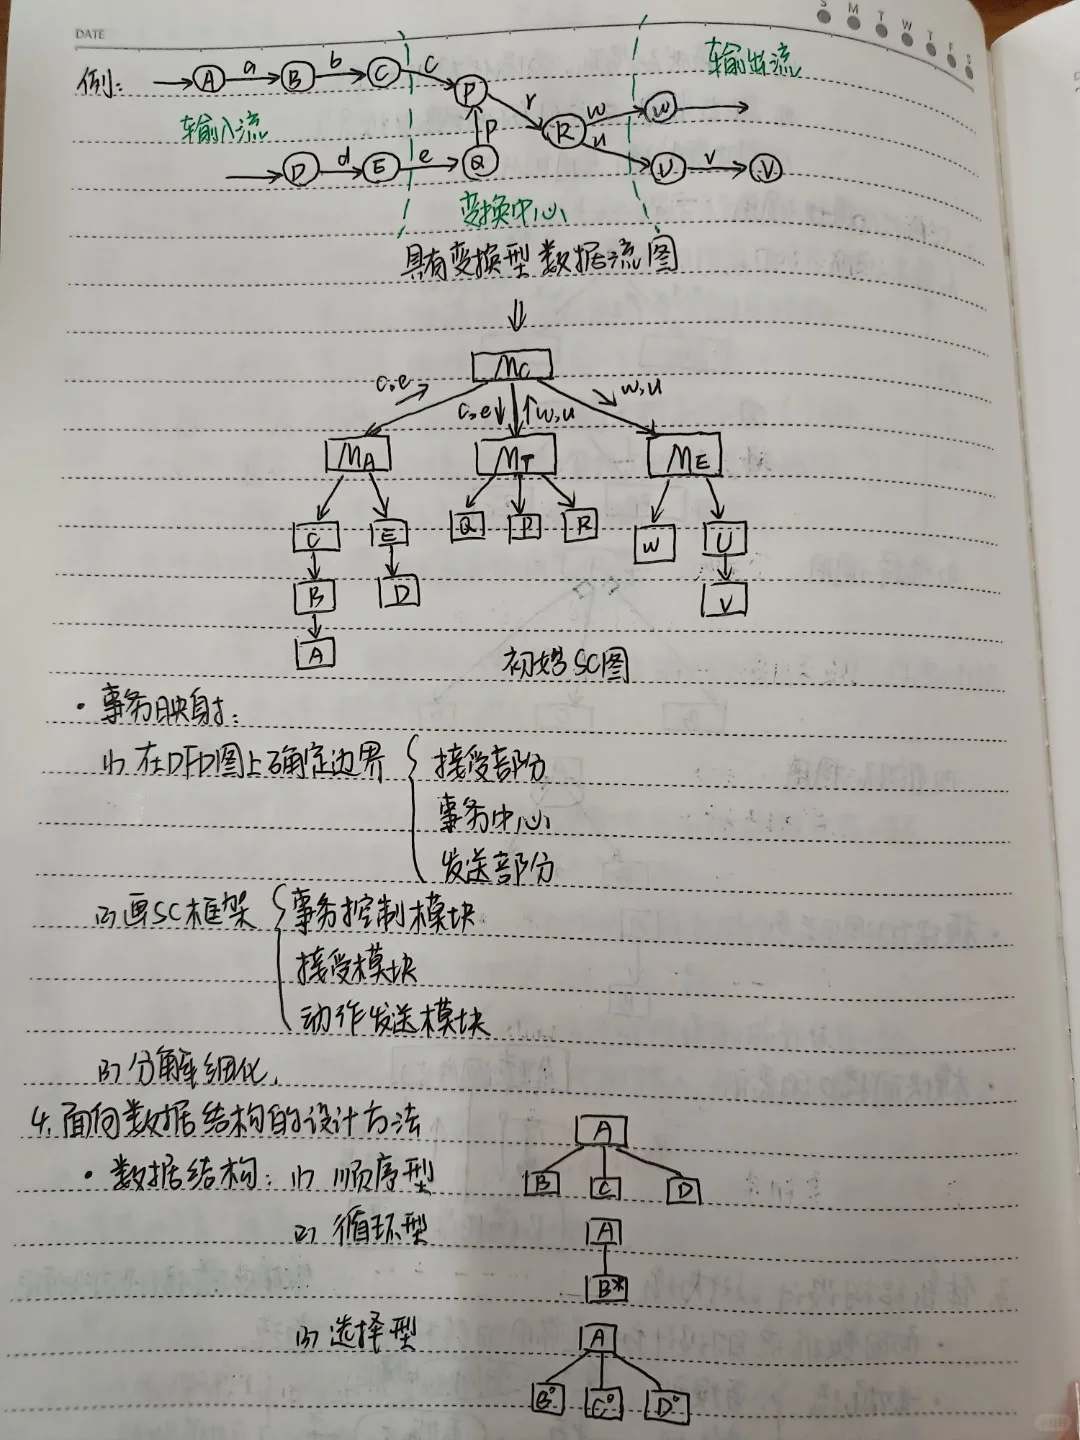 DATE
S M T W T F S
例: A a B b C c P r R w W 输出流
输入流 p u
D d E e Q U v V
变换中心
具有变换型数据流图
Mc
c,e c,e w,u w,u
MA MT ME
C E Q P R W U
B D V
A
初始SC图
· 事务映射:
(1) 在DFD图上确定边界 { 接受部分
事务中心
发送部分
(2) 画SC框架 { 事务控制模块
接受模块
动作发送模块
(3) 分解细化.
4. 面向数据结构的设计方法
· 数据结构: (1) 顺序型
A
B C D
(2) 循环型
A
B*
(3) 选择型
A
B° C° D°
小红书